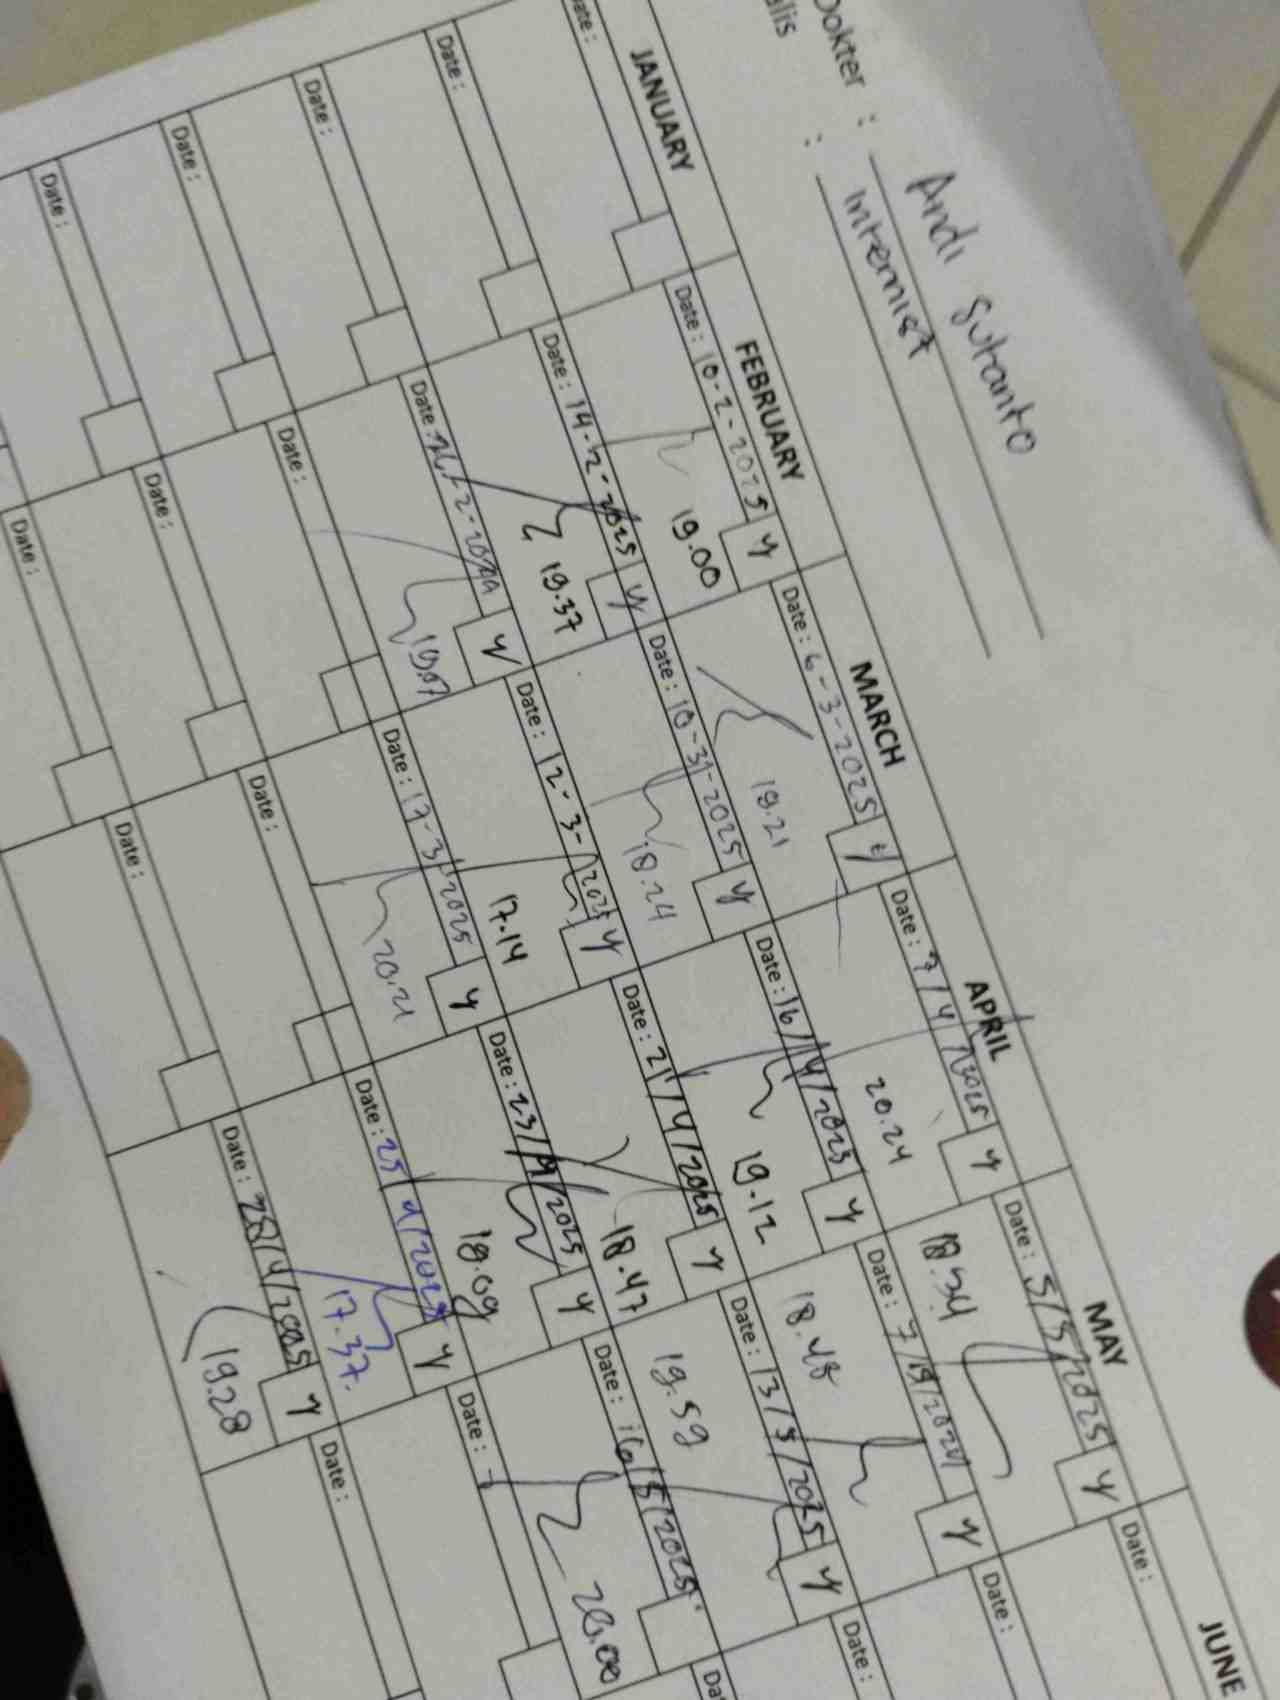 Dokter : Andi Sutanto
alis : Internist
JANUARY
Date :
Date :
Date :
Date :
Date :
FEBRUARY
Date : 10-2-2025 y
19.00
Date : 14-2-2025 y
19.37
Date : y
19.07
Date :
Date :
Date :
MARCH
Date : 6-3-2025 y
19.21
Date : 10-3-2025 y
18.24
Date : 12-3-2025 y
17.14
Date : 17-3-2025 y
20.21
Date :
Date :
APRIL
Date : 7/4/2025 y
20.24
Date : 16/4/2025 y
19.12
Date : 21/4/2025 y
18.47
Date : 23/4/2025 y
18.09
Date : 25/4/2025 y
17.37.
Date : 28/4/2025 y
19.28
MAY
Date : 5/5/2025 y
18.34
Date : 7/5/2025 y
18.48
Date : 13/5/2025 y
19.59
Date : 16/5/2025
20.00
Date :
Date :
JUNE
Date :
Date :
Date :
Da